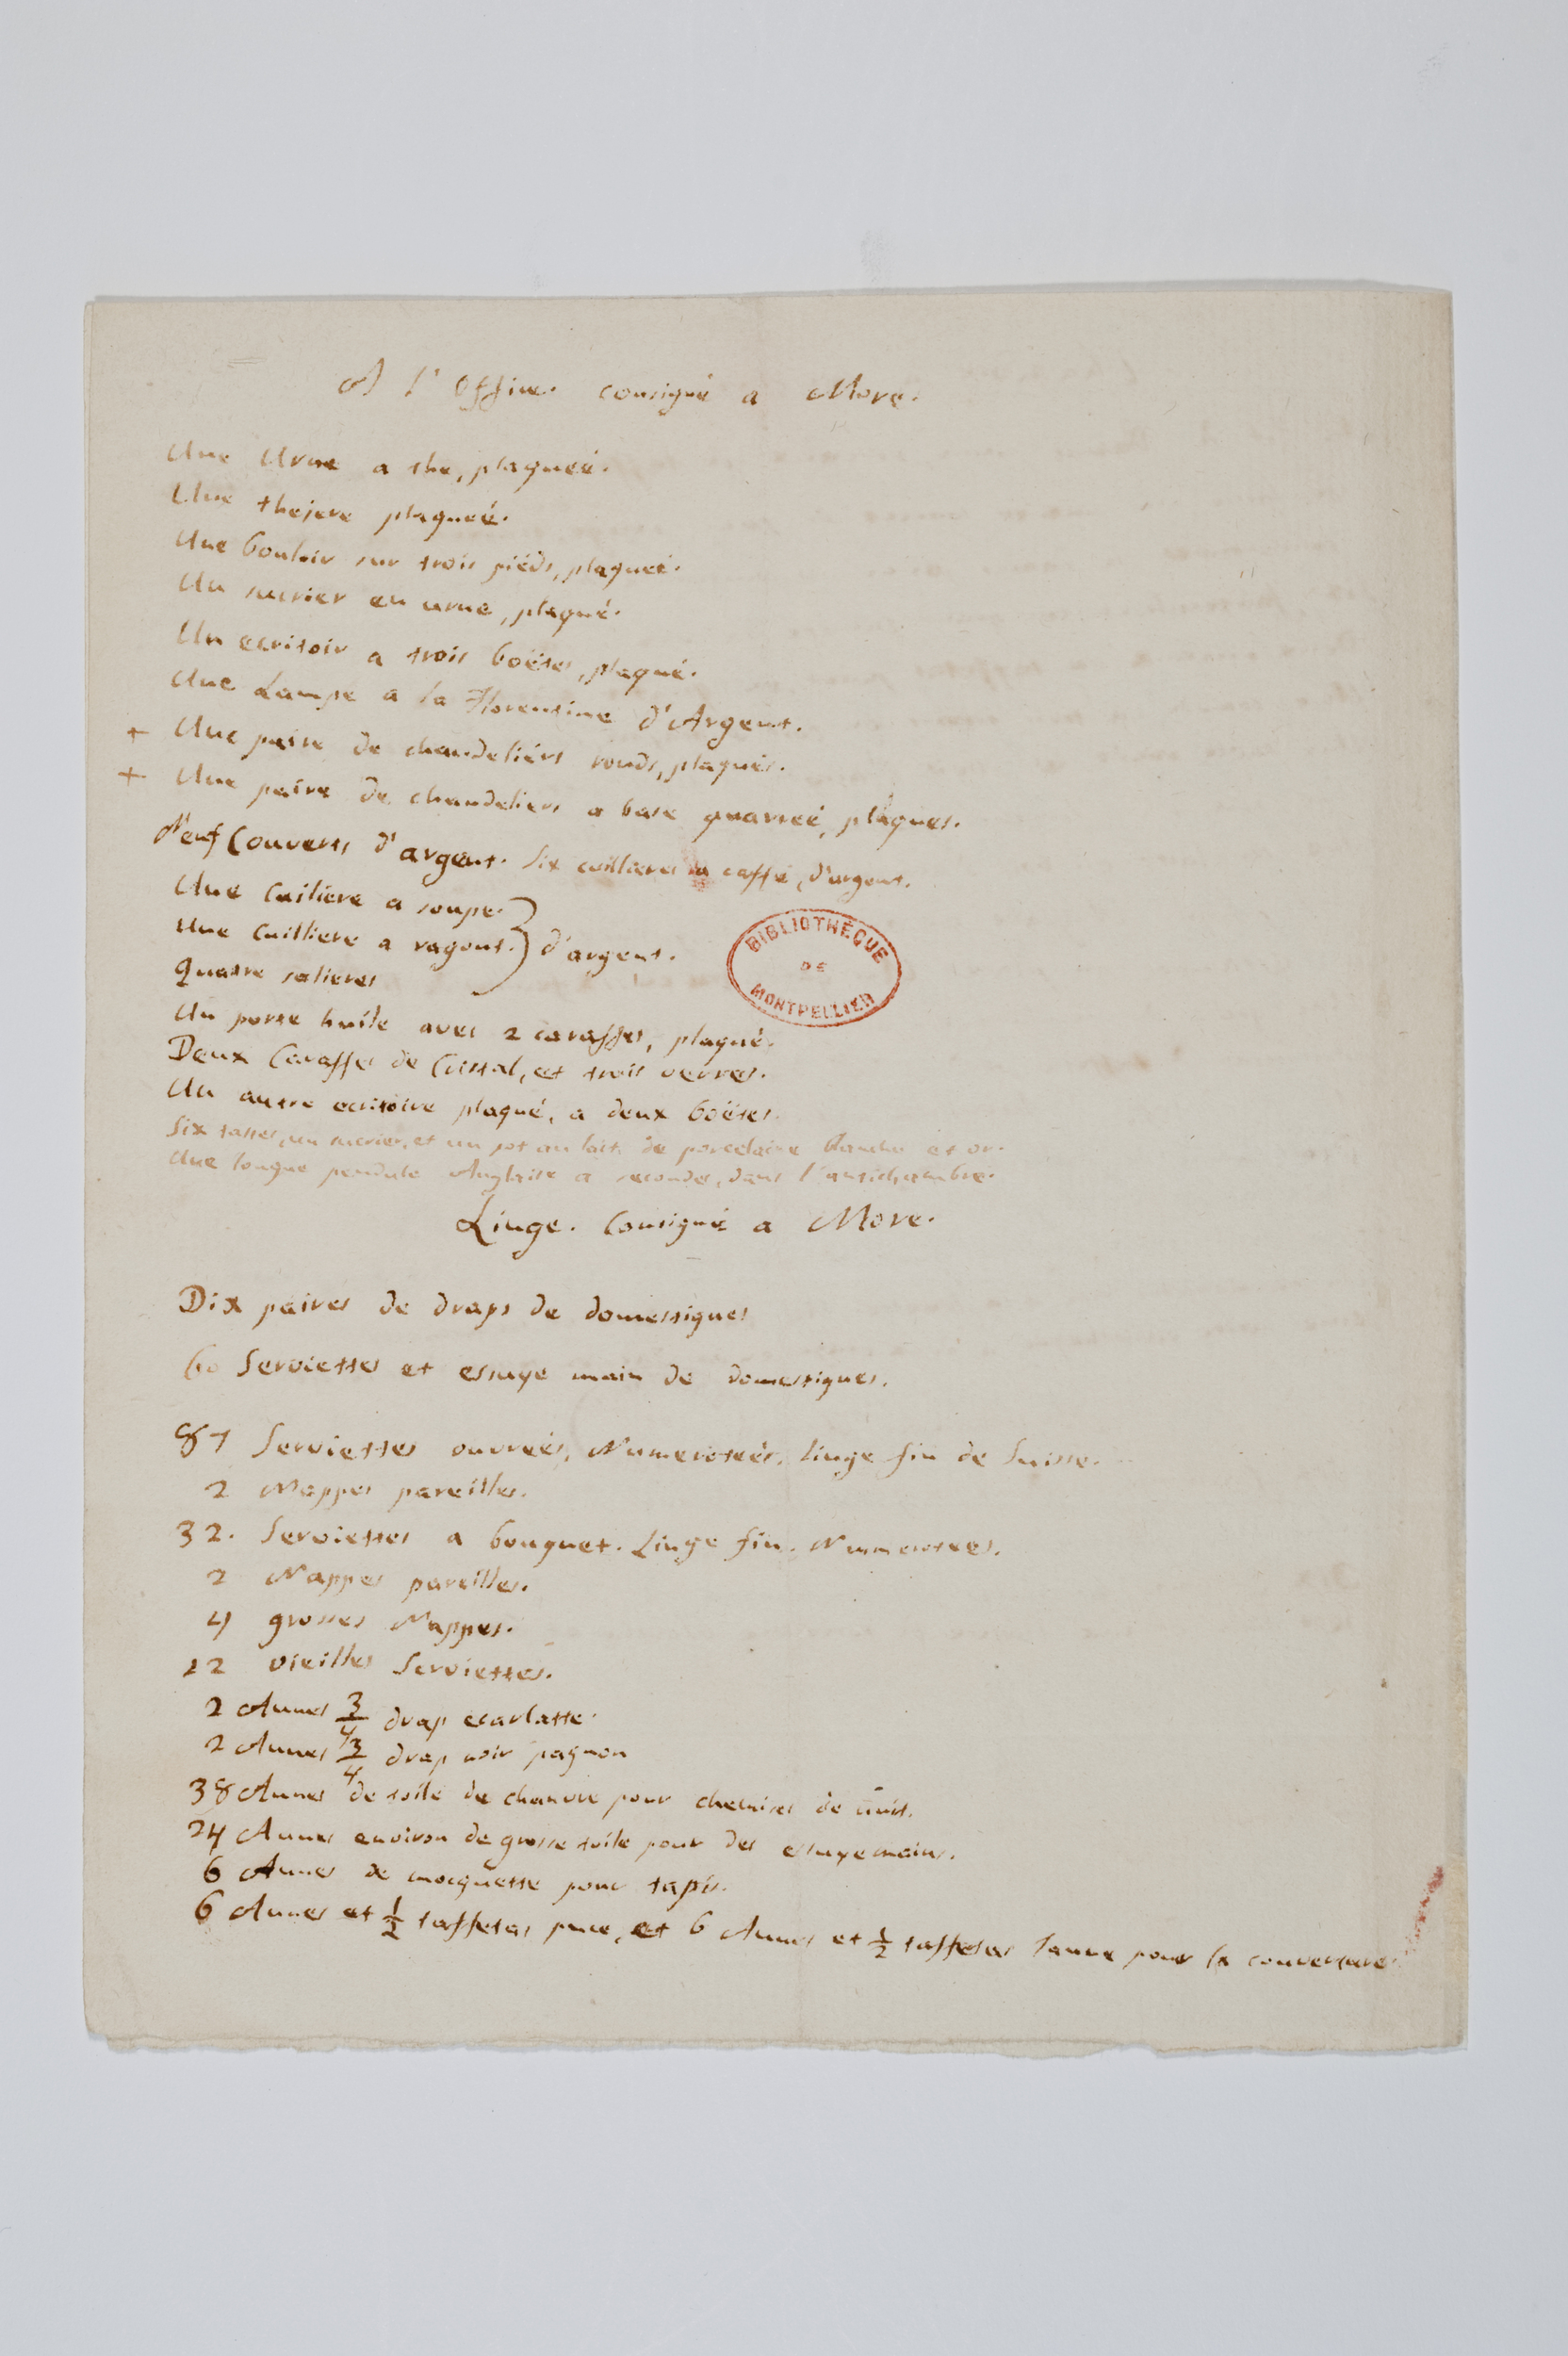 A l'Office. consigné a More.
Une Urne a the, plaqueé.
Une thejere plaqueé.
Une bouloir sur trois piéds, plaqueé.
Un sucrier en urne, plaqué.
Un ecritoir a trois boëtes, plaqué.
Une Lampe a la Florentine d'Argent.
+ Une paire de chandeliérs ronds, plaqués.
+ Une paire de chandeliers a base quarreé, plaqués.
Neuf Couverts d'argent. Six cuillieres a caffé, d'argent.
Une Cuiliere a soupe.
Une Cuilliere a ragout. } d'argent.
Quatre salieres
Un porte huile avec 2 caraffes, plaqué.
Deux Caraffes de Cristal, et trois verres.
Un autre ecritoire plaqué, a deux boëtes.
Six tasses, un sucrier, et un pot au lait de porcelaine blanche et or.
Une longue pendule Anglaise a secondes, dans l'antichambre.
BIBLIOTHÈQUE
DE
MONTPELLIER
Linge. Consigné a More.
Dix paires de draps de domestiques
60 Serviettes et essuye main de domestiques.
87 Serviettes ouvreés, Numeroteés. linge fin de Suisse.
2 Nappes pareilles.
32. Serviettes a bouquet. Linge fin. Numerotees.
2 Nappes pareilles.
4 grosses Nappes.
12 vieilles Serviettes.
2 Aunes 3/4 drap ecarlatte.
2 Aunes 3/4 drap noir pagnon
38 Aunes de toile de chanvre pour chemises de nuit.
24 Aunes environ de grosse toile pour des essuyemains.
6 Aunes de mocquette pour tapis.
6 Aunes et 1/2 taffetas puce, et 6 Aunes et 1/2 taffetas jaune pour la couverture